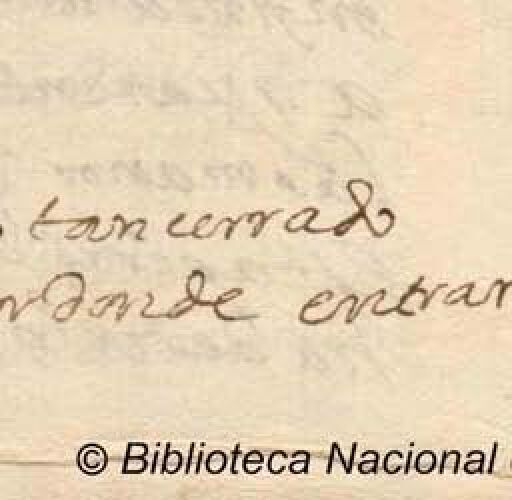 tan cerrado
ordonde entrar
© Biblioteca Nacional